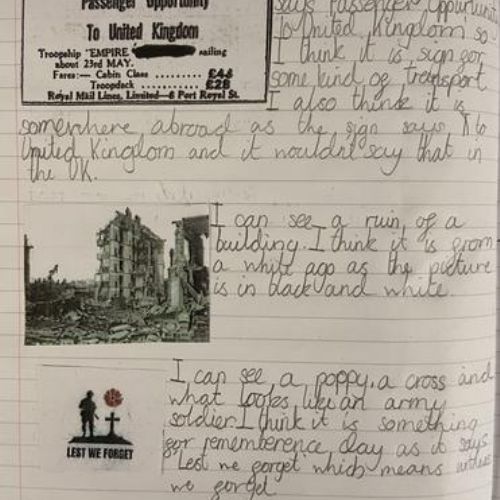 Passenger Opportunity
To United Kingdom
Troopship "EMPIRE sailing
about 23rd MAY.
Fares:— Cabin Class .......... £48
Troopdeck .......... £28
Royal Mail Lines, Limited—8 Port Royal St.
says Passenger Oppurtunity
to United Kingdom so
I think it is sign for
some kind of transport
I also think it is
somewhere abroad as the sign says to
United Kingdom and it wouldnt say that in
the UK.
I can see a ruin, of a
building. I think it is from
a while ago as the picture
is in black and white.
LEST WE FORGET
I can see a poppy, a cross and
what looks like an army
soldier. I think it is something
for rememberence day as it says
'Lest we forget which means unless
we forget